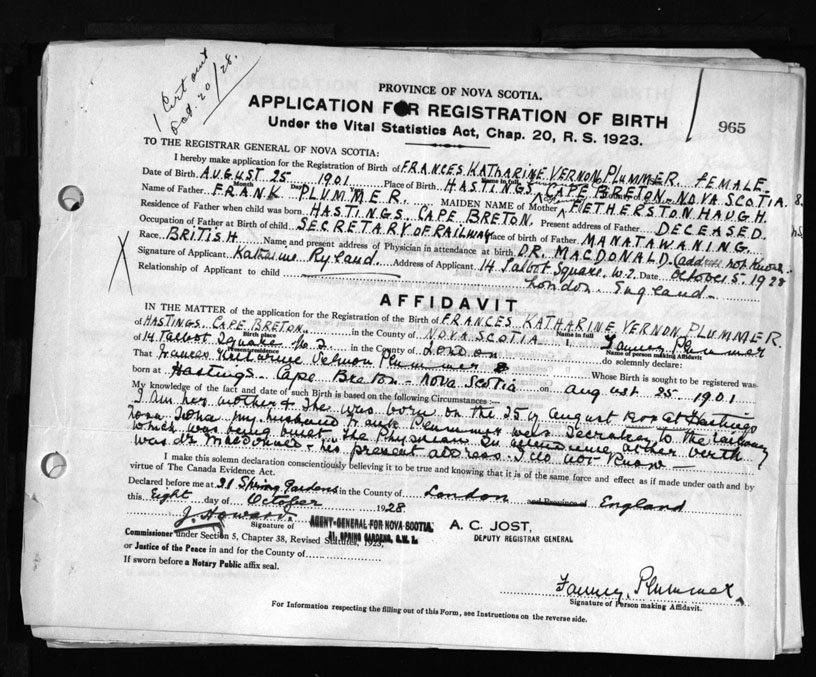 1 Cert out
Oct. 20/28.
PROVINCE OF NOVA SCOTIA.
APPLICATION FOR REGISTRATION OF BIRTH
Under the Vital Statistics Act, Chap. 20, R. S. 1923.
965
TO THE REGISTRAR GENERAL OF NOVA SCOTIA:
I hereby make application for the Registration of Birth of FRANCES KATHARINE VERNON PLUMMER. FEMALE.
Name in full
Date of Birth AUGUST 25 1901 Place of Birth HASTINGS, CAPE BRETON - NOVA SCOTIA
Month Day Year
Name of Father FRANK PLUMMER. MAIDEN NAME of Mother FETHERSTONHAUGH.
Residence of Father when child was born HASTINGS, CAPE BRETON, Present address of Father DECEASED.
Occupation of Father at Birth of child SECRETARY OF RAILWAY place of birth of Father MANATAWANING.
Race BRITISH Name and present address of Physician in attendance at birth DR. MACDONALD. (address not known.
Signature of Applicant Katharine Ryland Address of Applicant 14 Talbot Square, W.2. Date October 5. 1928
Relationship of Applicant to child London. England.
AFFIDAVIT
IN THE MATTER of the application for the Registration of the Birth of FRANCES KATHARINE VERNON PLUMMER.
Name in full
of HASTINGS, CAPE BRETON in the County of NOVA SCOTIA I, Fanney Plummer
Birth place Name of person making Affidavit
of 14 Talbot Square W.2. in the County of London do solemnly declare:
Present residence
That Frances Katharine Vernon Plummer Whose Birth is sought to be registered was
born at Hastings - Cape Breton - Nova Scotia on August 25 1901
My knowledge of the fact and date of such Birth is based on the following Circumstances :—
I am her mother & she was born on the 25 of August 1901 at Hastings
my husband Frank Plummer was Secretary to the railway
which was being built. The Physician in attendance at her birth
was dr Macdonald - his present address I do not know -
I make this solemn declaration conscientiously believing it to be true and knowing that it is of the same force and effect as if made under oath and by
virtue of The Canada Evidence Act.
Declared before me at 21 Spring Gardens in the County of London and Province of England
this Eight day of October 1928
J. Howard
Signature of AGENT-GENERAL FOR NOVA SCOTIA.
31, SPRING GARDENS, S.W.1.
A. C. JOST,
DEPUTY REGISTRAR GENERAL
Commissioner under Section 5, Chapter 38, Revised Statutes, 1923,
or Justice of the Peace in and for the County of
If sworn before a Notary Public affix seal.
Fanney Plummer.
Signature of Person making Affidavit.
For Information respecting the filling out of this Form, see Instructions on the reverse side.